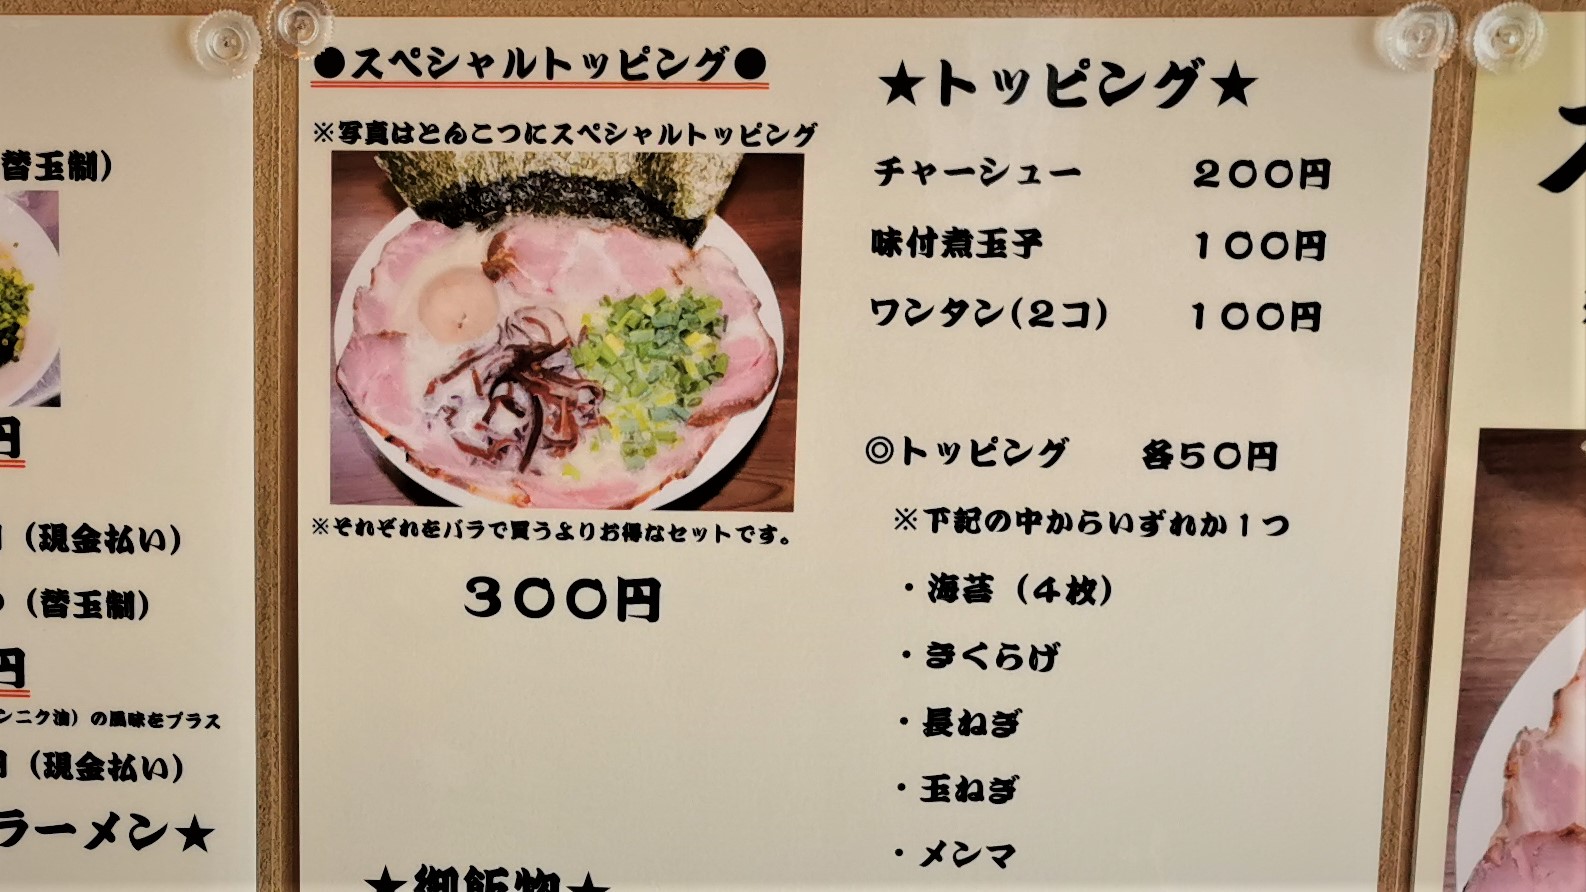 替玉制）
円
（現金払い）
（替玉制）
円
ンニク油）の風味をプラス
（現金払い）
ラーメン★
●スペシャルトッピング●
※写真はとんこつにスペシャルトッピング
※それぞれをバラで買うよりお得なセットです。
３００円
★御飯物★
★トッピング★
チャーシュー ２００円
味付煮玉子 １００円
ワンタン(２コ) １００円
◎トッピング 各５０円
※下記の中からいずれか１つ
・海苔（４枚）
・きくらげ
・長ねぎ
・玉ねぎ
・メンマ